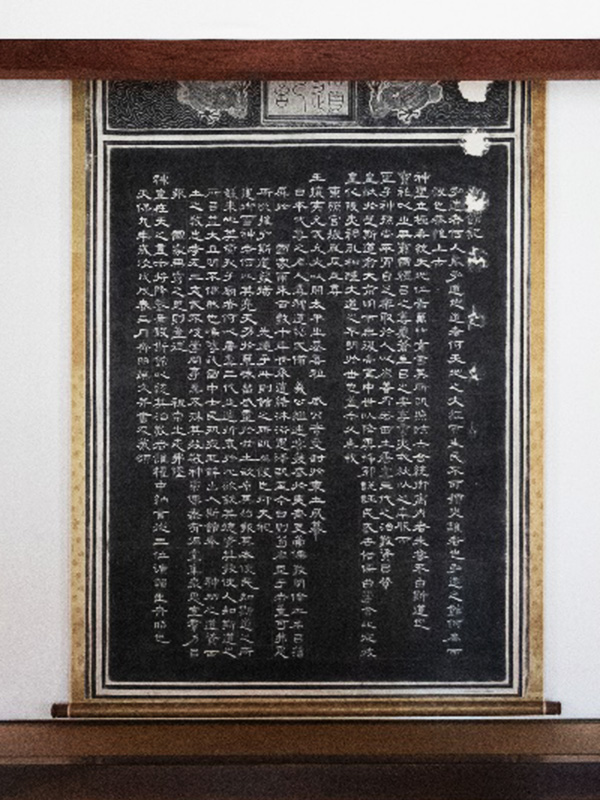 弘道館記
弘道者何人能弘道也道者何天地之大經而生民不可須臾離者也弘道之館何爲而
設也恭惟上古
神聖立極垂統天地位焉萬物育焉其所以照臨六合統御宇內者未嘗不由斯道也
寶祚以之無窮國體以之尊嚴蒼生以之安寧蠻夷戎狄以之率服而
聖子神孫尚不肯自足樂取於人以爲善乃若西土唐虞三代之治敎資以贊
皇猷於是斯道愈大愈明而無復尚焉中世以降異端邪說誣民惑世俗儒曲學舍此從彼
皇化陵夷禍亂相踵大道之不明於世也蓋亦久矣我
東照宮撥亂反正尊
王攘夷允武允文以開太平之基吾祖 威公實受封於東土夙慕
日本武尊之爲人尊神道繕武備 義公繼述嘗發感於夷齊更崇儒敎明倫正名以藩
屏於 國家爾來百數十年世承遺緒沐浴恩澤以至今日則苟爲臣子者豈可弗思
所以推弘斯道發揚 先德乎此則館之所以爲設也抑夫祀
建御雷神者何以其亮天功於草昧留威靈於茲土欲原其始報其本使民知斯道之所
繇來也其營孔子廟者何以唐虞三代之道折衷於此欲欽其德資其敎使人知斯道之
所以益大且明不偶然也嗚呼我國中士民夙夜匪懈出入斯館奉 神州之道資西
土之敎忠孝无二文武不岐學問事業不殊其效敬神崇儒無有偏黨集衆思宣羣力以
報 國家無窮之恩則豈徒 祖宗之志弗墜
神皇在天之靈亦將降鑒焉設斯館以統其治敎者誰權中納言從三位源朝臣齊昭也
天保九年歲次戊戌春三月齊昭撰文幷書及篆額